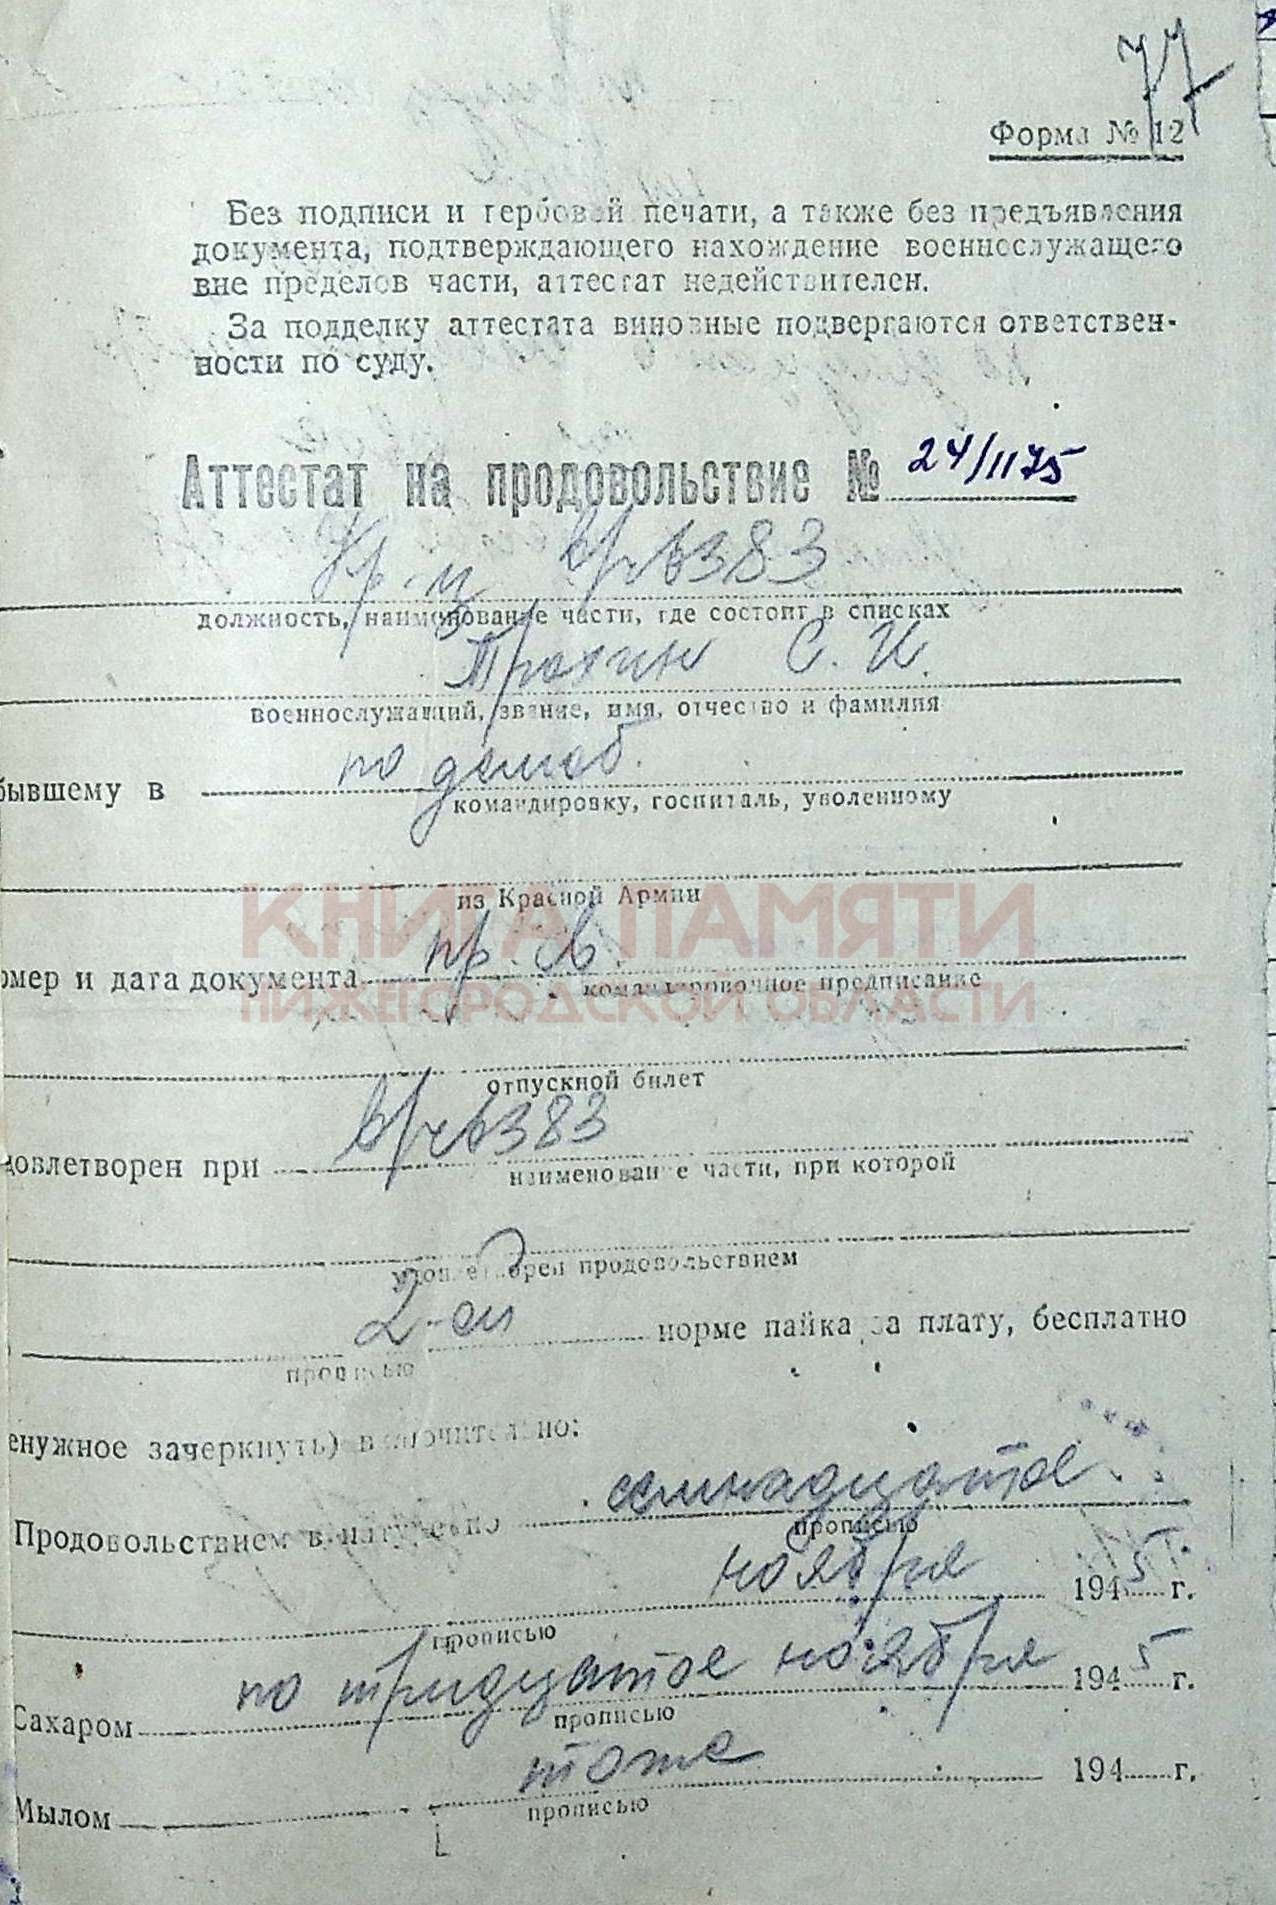 77
Форма № 12
Без подписи и гербовой печати, а также без предъявления
документа, подтверждающего нахождение военнослужащего
вне пределов части, аттестат недействителен.
За подделку аттестата виновные подвергаются ответствен-
ности по суду.
Аттестат на продовольствие № 24/1175
Кр-ц в/ч 6383
должность, наименование части, где состоит в списках
Трахин С. И.
военнослужащий, звание, имя, отчество и фамилия
бывшему в по демоб.
командировку, госпиталь, уволенному
из Красной Армии
КНИГА ПАМЯТИ
омер и дата документа пр. св.
командировочное предписание
НИЖЕГОРОДСКОЙ ОБЛАСТИ
отпускной билет
довлетворен при в/ч 6383
наименование части, при которой
удовлетворен продовольствием
2-ой норме пайка за плату, бесплатно
прописью
енужное зачеркнуть) включительно:
Продовольствием в натуре по семнадцатое
прописью
ноября 1945 г.
прописью
Сахаром по тридцатое ноября 1945 г.
прописью
Мылом тоже 194 г.
прописью